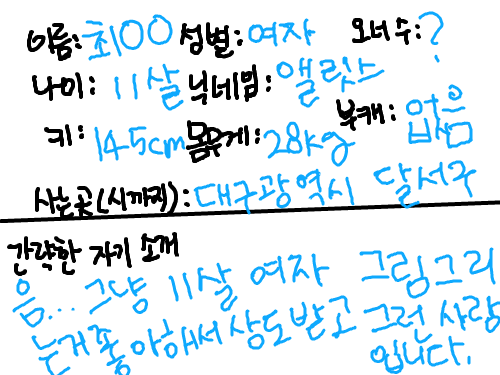 이름: 최OO 성별: 여자 오너 수: ?
나이: 11살 닉네임: 앨릿스
키: 145cm 몸무게: 28kg 부캐: 없음
사는곳(시까지): 대구광역시 달서구
간략한 자기 소개
음... 그냥 11살 여자 그림그리
는거좋아해서상도받고 그런 사람
입니다.